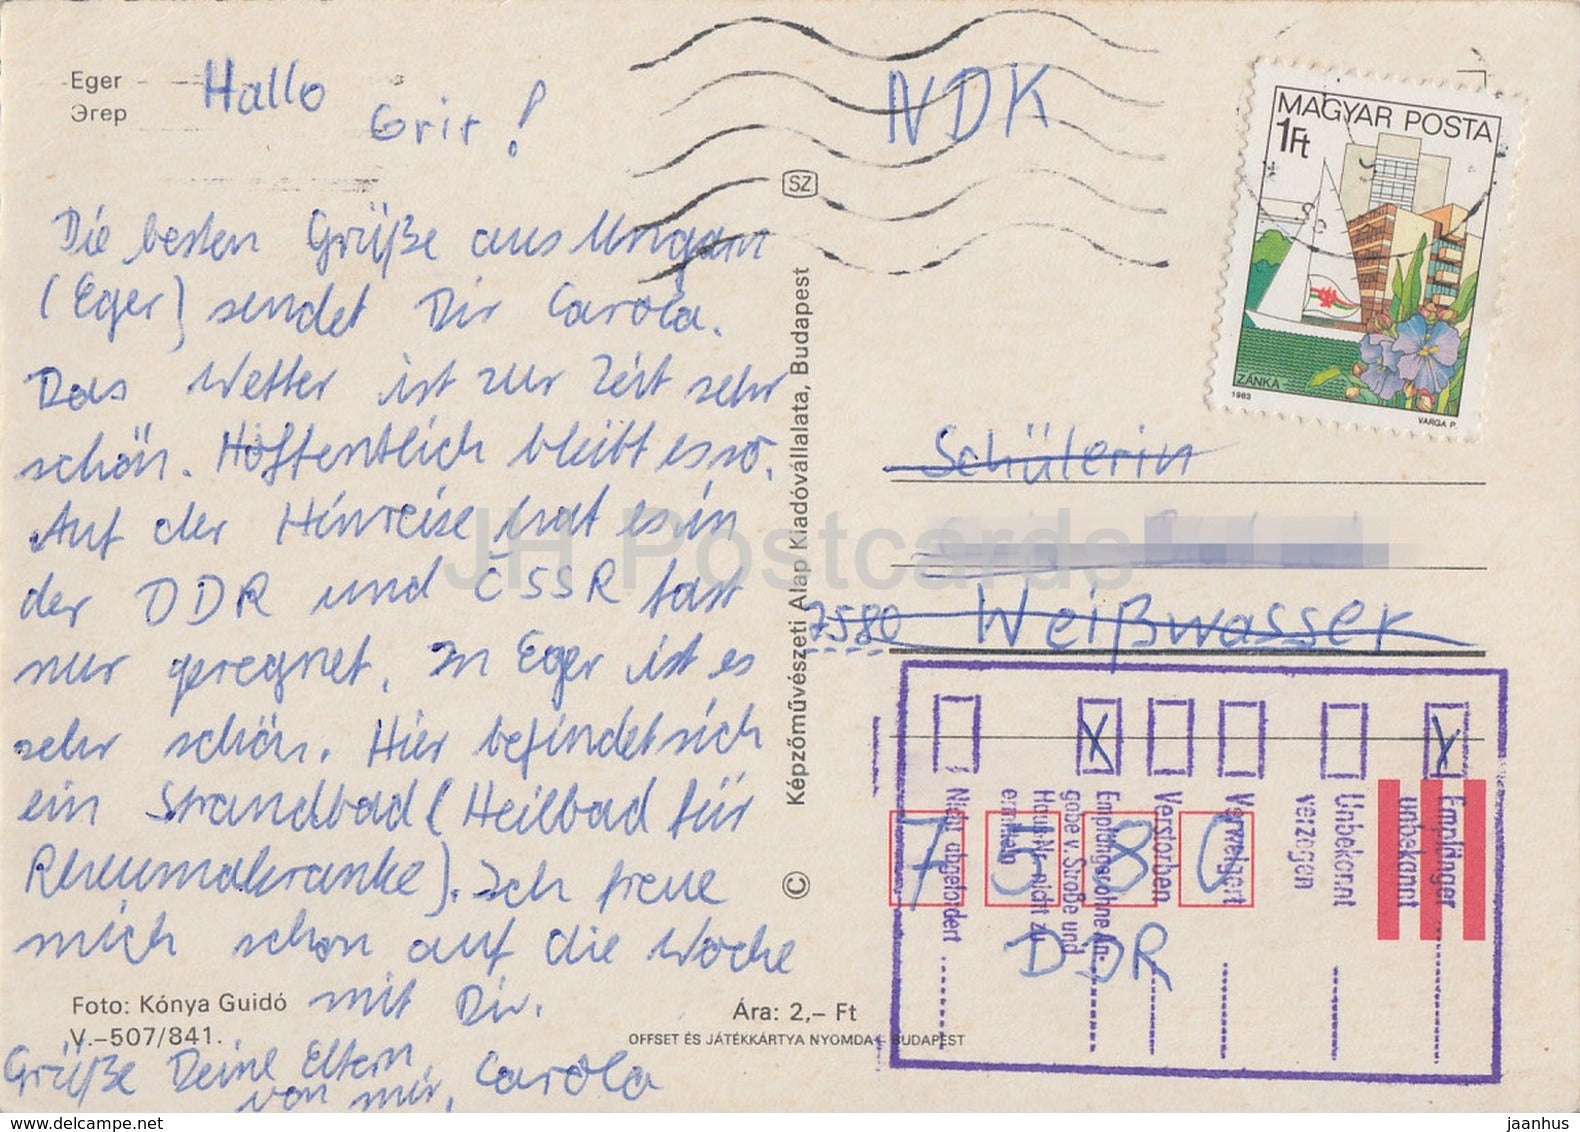 Eger
Эгер
Hallo
Grit!
Die besten Grüße aus Ungarn
(Eger) sendet Dir Carola.
Das Wetter ist zur Zeit sehr
schön. Hoffentlich bleibt es so.
Auf der Hinreise hat es in
der DDR und ČSSR fast
nur geregnet. In Eger ist es
sehr schön. Hier befindet sich
ein Strandbad (Heilbad für
Rheumakranke). Ich freue
mich schon auf die Woche
mit Dir.
Grüße Deine Eltern
von mir, Carola
Foto: Kónya Guidó
V.–507/841.
Ára: 2,– Ft
OFFSET ÉS JÁTÉKKÁRTYA NYOMDA – BUDAPEST
SZ
© Képzőművészeti Alap Kiadóvállalata, Budapest
NDK
MAGYAR POSTA
1Ft
ZÁNKA
1983
VARGA P.
Schülerin
7580 Weißwasser
7580
DDR
Nicht abgefordert
Empfänger ohne An-
gabe v. Straße und
Haus-Nr. nicht zu
ermitteln
Verstorben
Verweigert
Unbekannt
verzogen
Empfänger
unbekannt
JH Postcards
www.delcampe.net
jaanhus